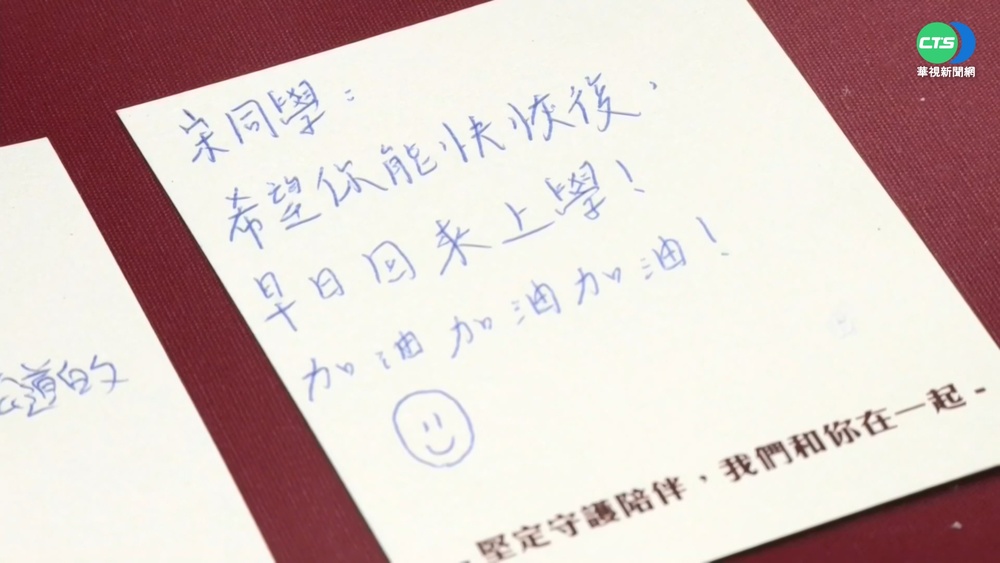 CTS
華視新聞網
宋同學：
希望你能快恢後、
早日回來上學！
加油加油加油！
堅定守護陪伴，我們和你在一起-
道的